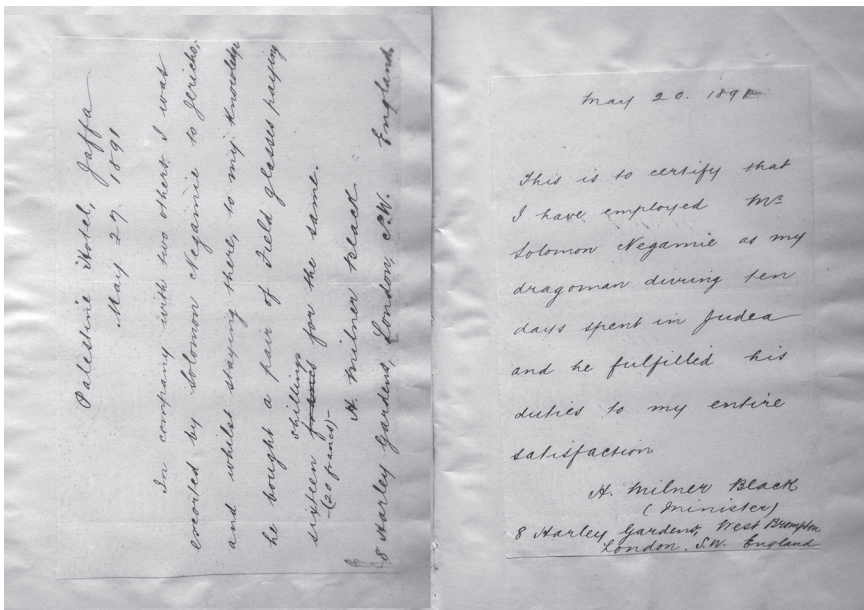 Palestine Hotel, Jaffa
May 27. 1891
In company with two others I was
escorted by Solomon Negamie to Jericho,
and whilst staying there, to my knowledge
he bought a pair of Field glasses paying
shillings
sixteen francs for the same.
(20 francs)-
H. Milner Black
8 Harley Gardens, London, S.W. England
May 20. 1891
This is to certify that
I have employed Mr
Solomon Negamie as my
dragoman during ten
days spent in Judea
and he fulfilled his
duties to my entire
satisfaction
H. Milner Black
(Minister)
8 Harley Gardens, West Brompton
London. S.W. England